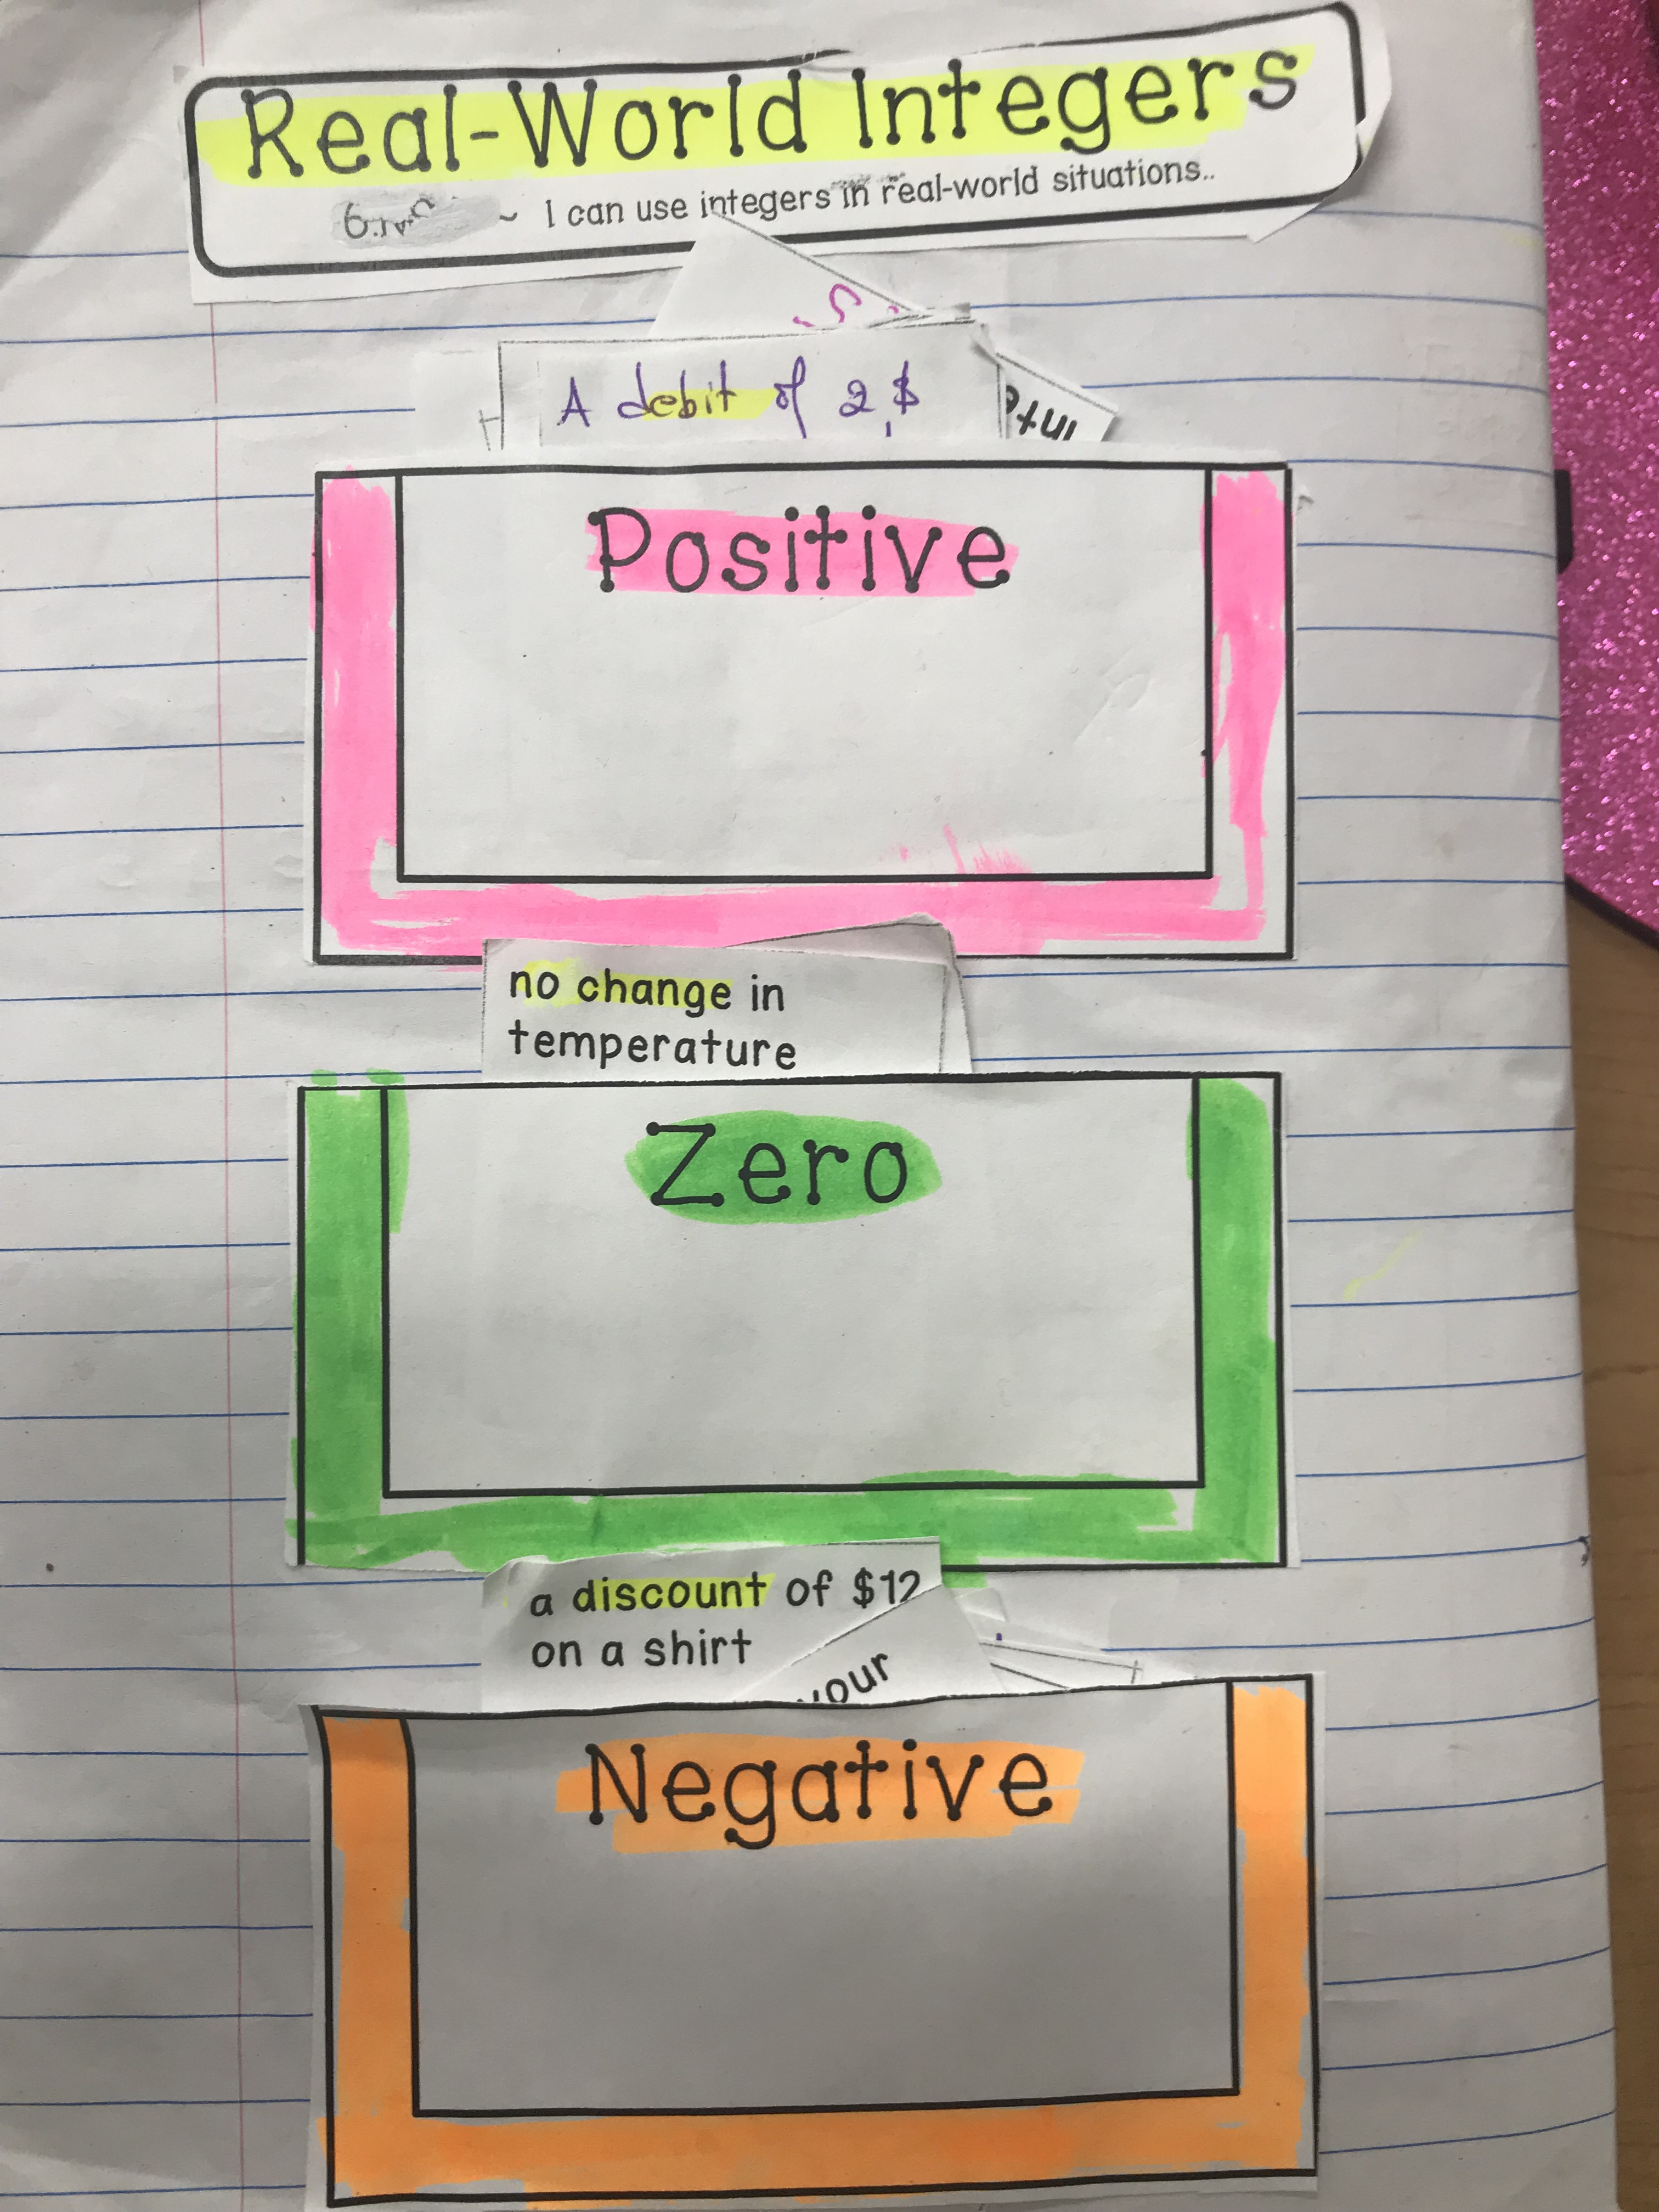 Real-World Integers
~ I can use integers in real-world situations..
A debit of 2$
Positive
no change in
temperature
Zero
a discount of $12
on a shirt
your
Negative